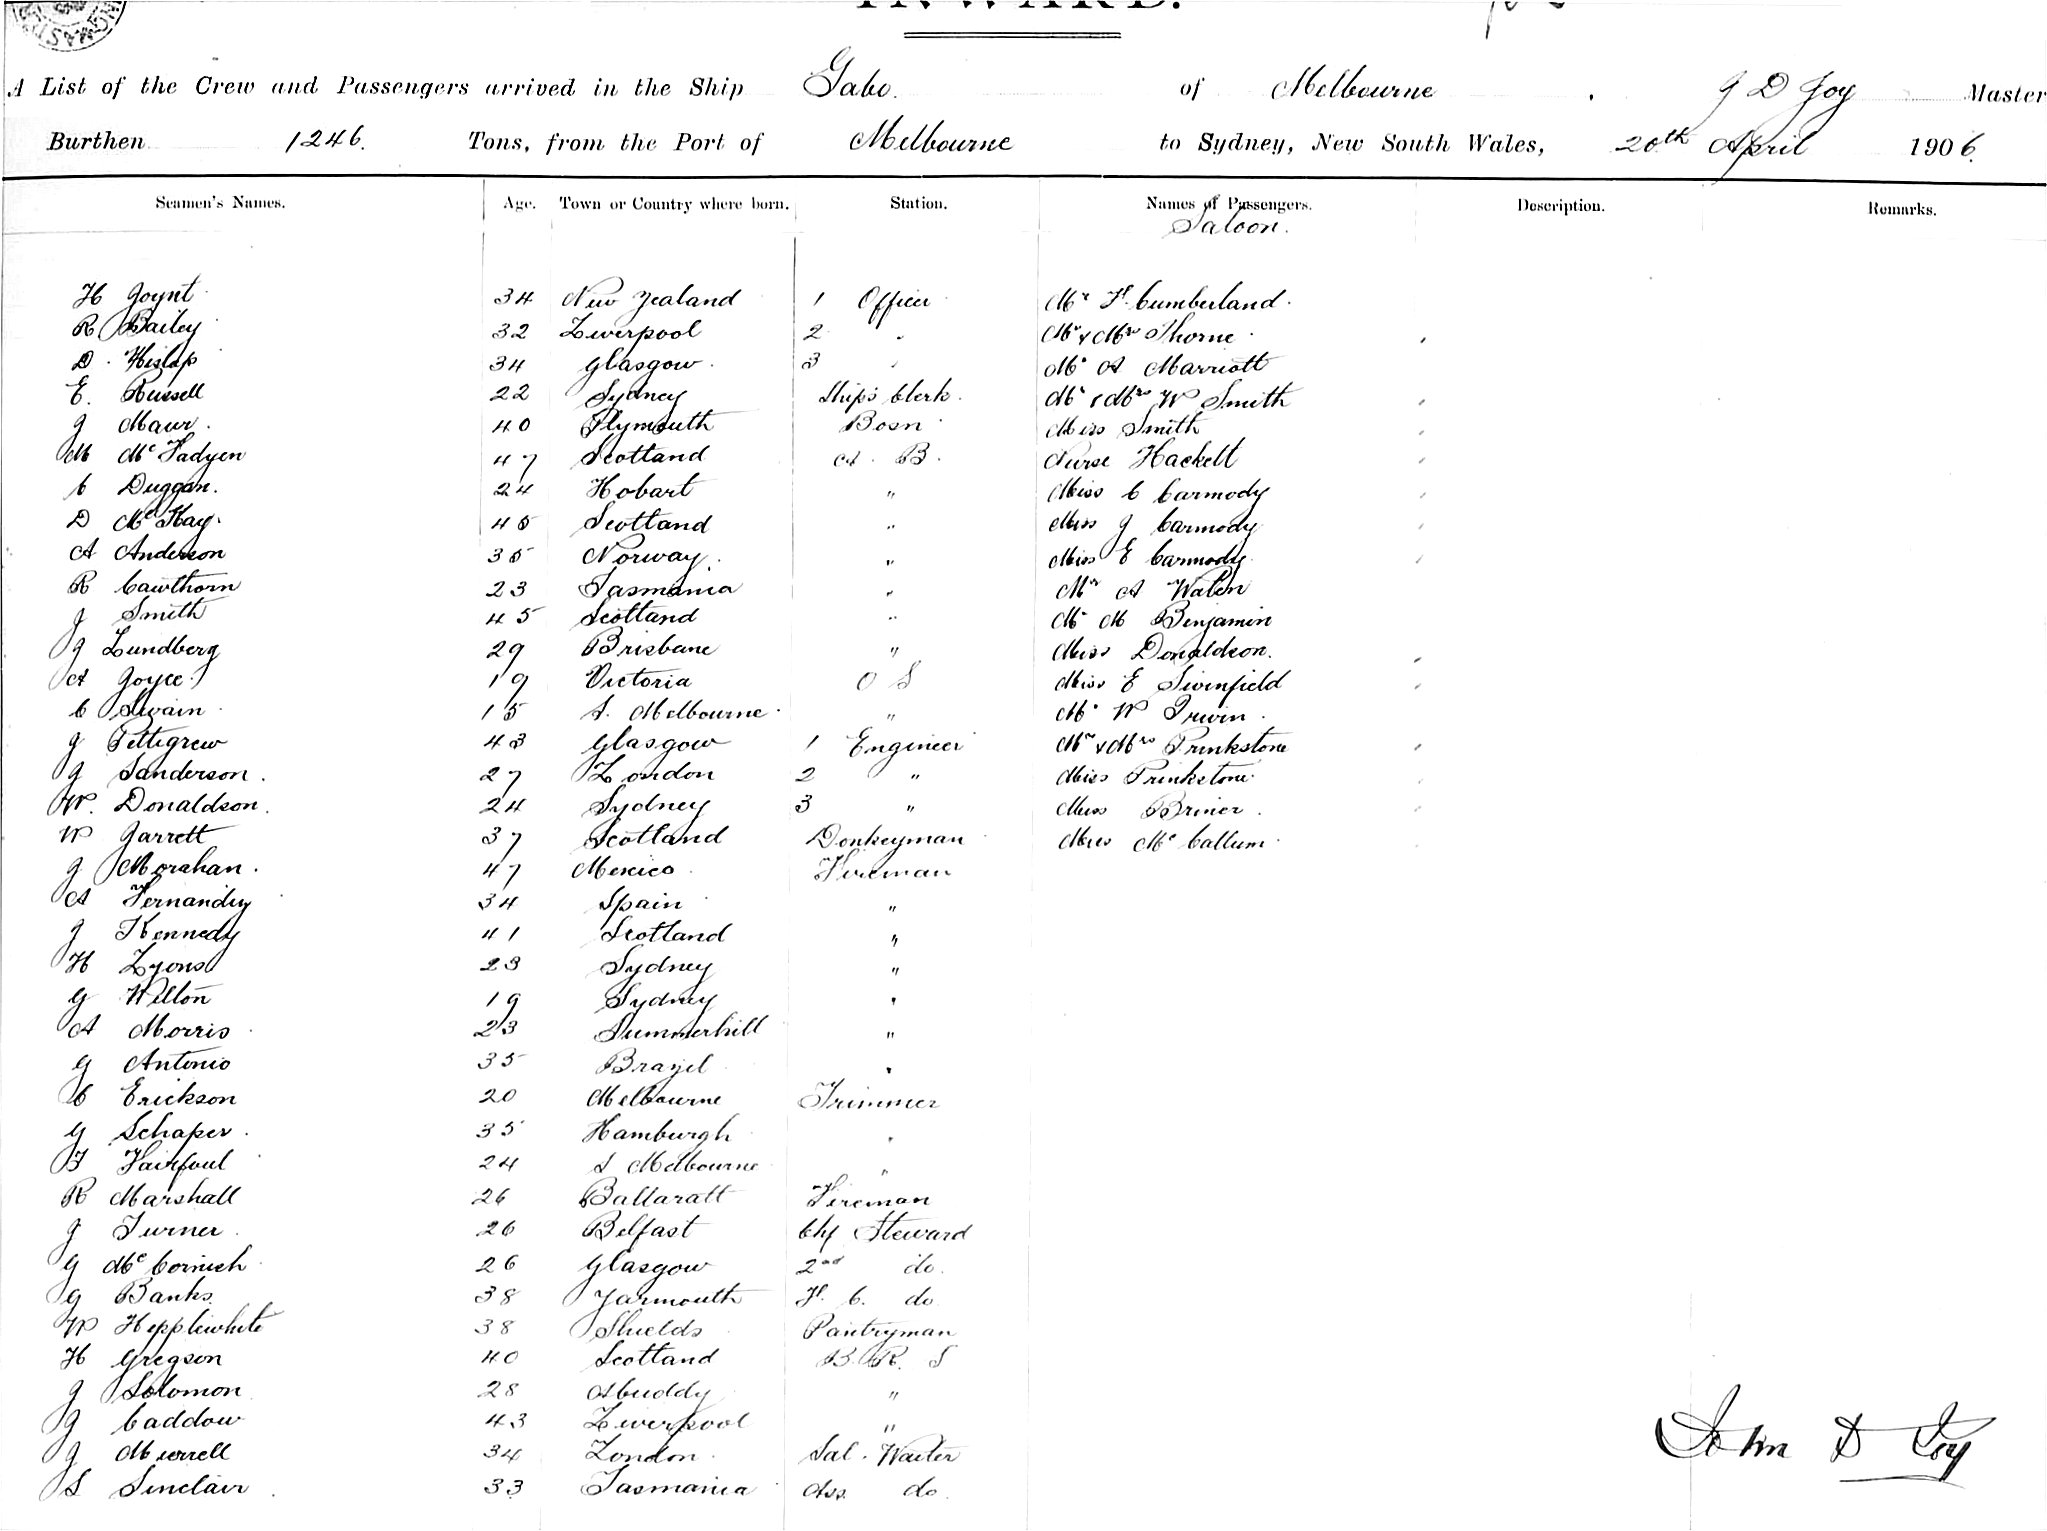 INWARD.
A List of the Crew and Passengers arrived in the Ship Gabo. of Melbourne J D Joy Master
Burthen 1246. Tons, from the Port of Melbourne to Sydney, New South Wales, 20th April 1906.
Seamen's Names. Age. Town or Country where born. Station. Names of Passengers. Description. Remarks.
Saloon.
H Joynt 34 New Zealand 1 Officer Mr F. Cumberland.
R Bailey 32 Liverpool 2 " Mr & Mrs Thorne
D. Hislop 34 Glasgow 3 " Mr A Marriott
E. Russell 22 Sydney Ships Clerk. Mr & Mrs W Smith
J Maur. 40 Plymouth Bosn Miss Smith
M McFadyen 47 Scotland A. B. Nurse Hackett
C Duggan. 24 Hobart " Miss C Carmody
D McKay. 45 Scotland " Miss J Carmody
A Anderson 35 Norway. " Miss E Carmody
R Cawthorn 23 Tasmania " Mr A
J Smith 45 Scotland " Mr M Benjamin
J Lundberg 29 Brisbane " Miss Donaldson.
A Joyce 19 Victoria O S Miss E Swinfield
C Swain 15 S. Melbourne " Mr W Irwin.
J Pettigrew 43 Glasgow 1 Engineer Mr & Mrs Prinkstone
J Sanderson. 27 London 2 " Miss Prinkstone
W. Donaldson. 24 Sydney 3 " Miss Briner.
W Garrett 37 Scotland Donkeyman Miss McCallum
J Morahan. 47 Mexico Fireman
A Fernandey 34 Spain "
J Kennedy 41 Scotland "
H Lyons 23 Sydney "
G Wilton 19 Sydney "
A Morris 23 Summerhill "
G Antonio 35 Brazil "
C Erickson 20 Melbourne Trimmer
G Schaper. 35 Hamburgh "
F Fairfoul 24 S Melbourne "
R Marshall 26 Ballaratt Fireman
J Turner 26 Belfast Chf Steward
G McCornish 26 Glasgow 2nd do.
G Banks. 38 Yarmouth F. C. do
W Hepplewhite 38 Shields Pantryman
H Gregson 40 Scotland B. R. S
J Solomon 28 "
J Caddow 43 Liverpool "
J Murrell 34 London Sal. Waiter
S Sinclair 33 Tasmania Ass. do.
John D Joy